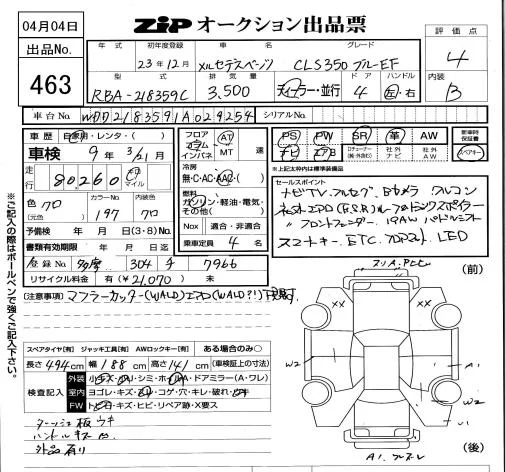 04月04日
ZIP オークション出品票
出品No.
463
年式 初年度登録 車名 グレード
23年12月 メルセデスベンツ CLS350 ブルーEF
型式 排気量 ドア ハンドル
RBA-218359C 3,500 ディーラー・並行 4 左・右
評価点
4
内装
B
車台No. WDD2183591A029254 シリアルNo.
車歴 自家用・レンタ・( )
車検 9年 3/21月
走行 80260 キロ マイル
色 クロ (元色) カラーNo. 197 内装 クロ
予備検 年 月 日(3・8)No.
書類有効期限 年 月 日迄
登録No. 多摩 304 7966
リサイクル料金 有(¥21,070) 未
フロア コラム インパネ AT MT 速
冷房 無・C・AC・AAC
燃料 ガソリン・軽油・電気・その他( )
Nox 適合・非適合
乗車定員 4名
PS PW SR 革 AW
ナビ エアB 社外ナビ 社外AW
新車時保証書
スペアキー
※上記太枠内は標準装備
セールスポイント
ナビTV フルセグ Bカメラ
LED
スマートキー ETC
[注意事項] マフラーカッター(WALD) エアロ(WALD?!)
スペアタイヤ[有] ジャッキ工具[有] AWロックキー[有] ある場合のみ○
長さ494cm 幅188cm 高さ141cm (車検証上の寸法)
検査記入
外装 小キズ・凹・シミ・ホイールA・ドアミラー(A・ワレ)
室内 ヨゴレ・キズ・ビリ・コゲ・穴・キレ・破れ・
FW トビ石・キズ・ヒビ・リペア跡・X要ス
ダッシュ板 ウキ
ハンドルキズ
外品有り
※ご記入の際はボールペンで強くご記入下さい。
(前)
XX
XX
W2
A1
W2
(後)